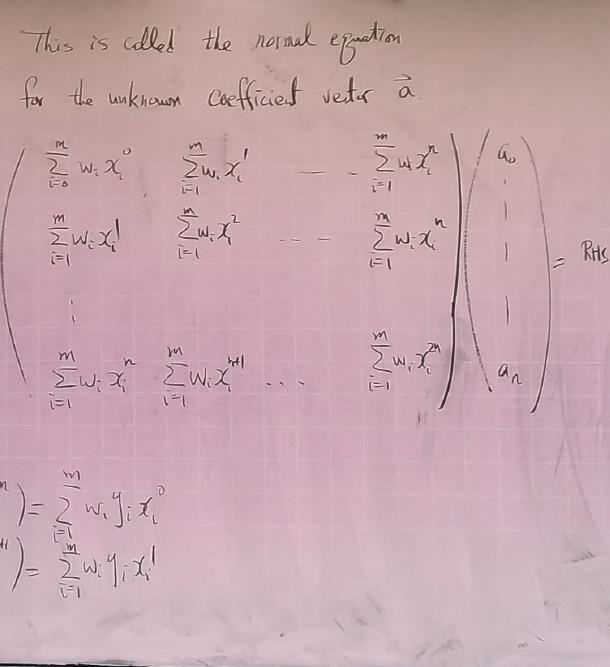 This is called the normal equation
for the unknown coefficient vector a⃗
( Σ_{i=0}^{m} w_i x_i^0   Σ_{i=1}^{m} w_i x_i^1   — - -   Σ_{i=1}^{m} w_i x_i^n ) ( a_0 )
Σ_{i=1}^{m} w_i x_i^1   Σ_{i=1}^{m} w_i x_i^2   - - -   Σ_{i=1}^{m} w_i x_i^n   |   = RHS
⋮   |
Σ_{i=1}^{m} w_i x_i^n   Σ_{i=1}^{m} w_i x_i^{n+1}   ...   Σ_{i=1}^{m} w_i x_i^{2n}   a_n
n ) = Σ_{i=1}^{m} w_i y_i x_i^0
+1 ) = Σ_{i=1}^{m} w_i y_i x_i^1